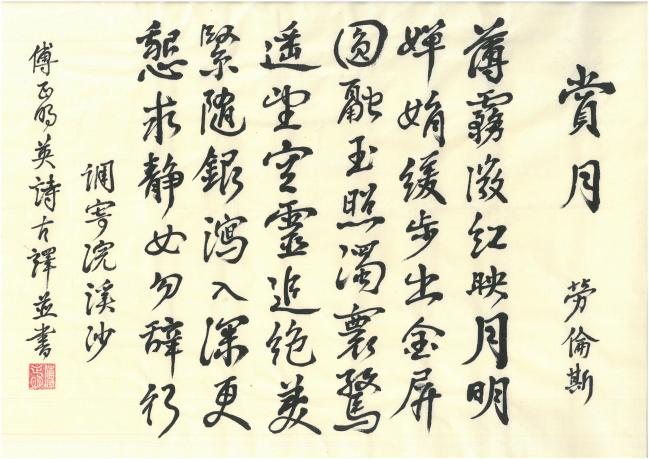 賞月
勞倫斯
薄霧微紅映月明
嬋娟緩步出金屏
圓融玉照濁寰驚
遥望空靈追絶美
緊隨銀瀉入深更
懇求静女勿辭行
調寄浣溪沙
傅正明英詩古譯並書